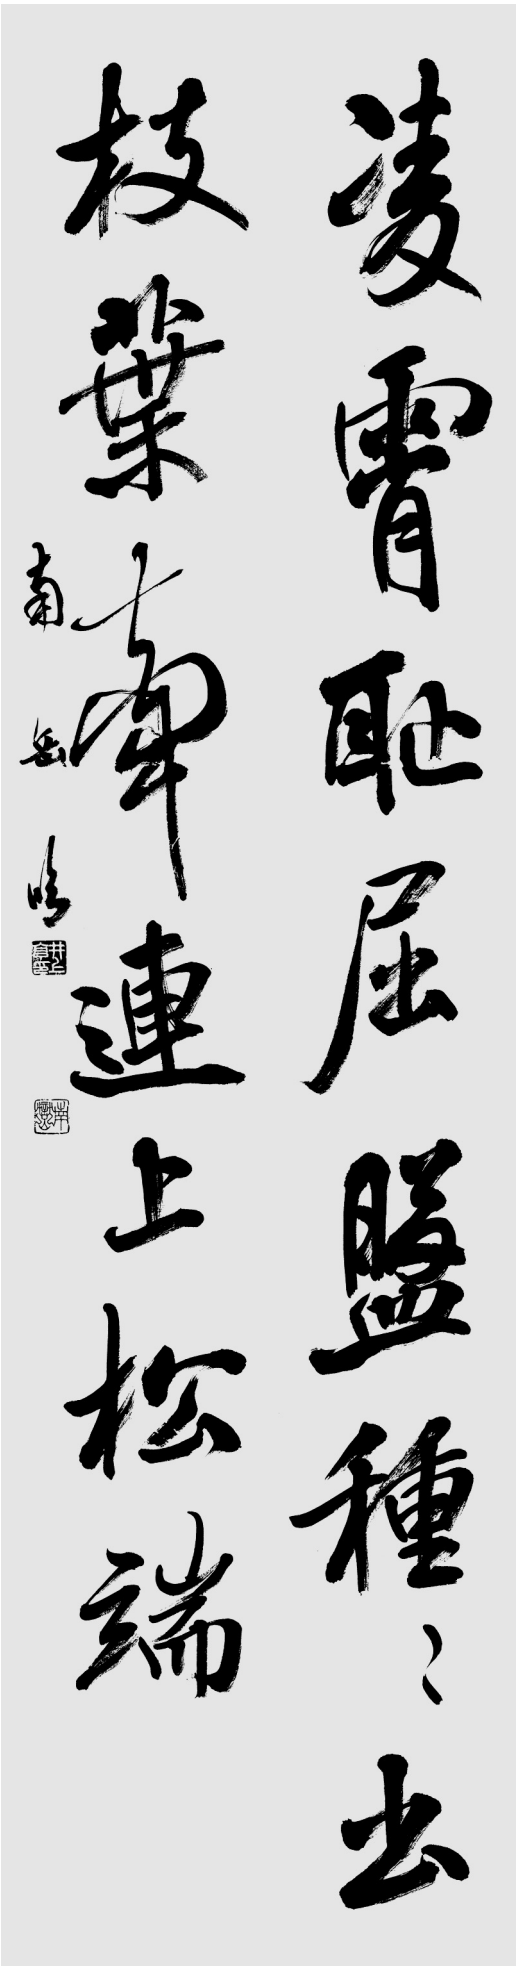 凌霄耻屈盤種〻出
枝葉牽連上松端
南岳